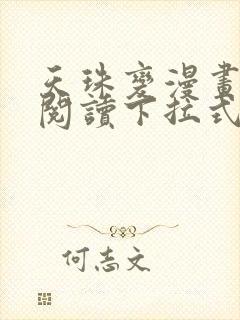 天珠變漫畫
閱讀下拉式
何志文